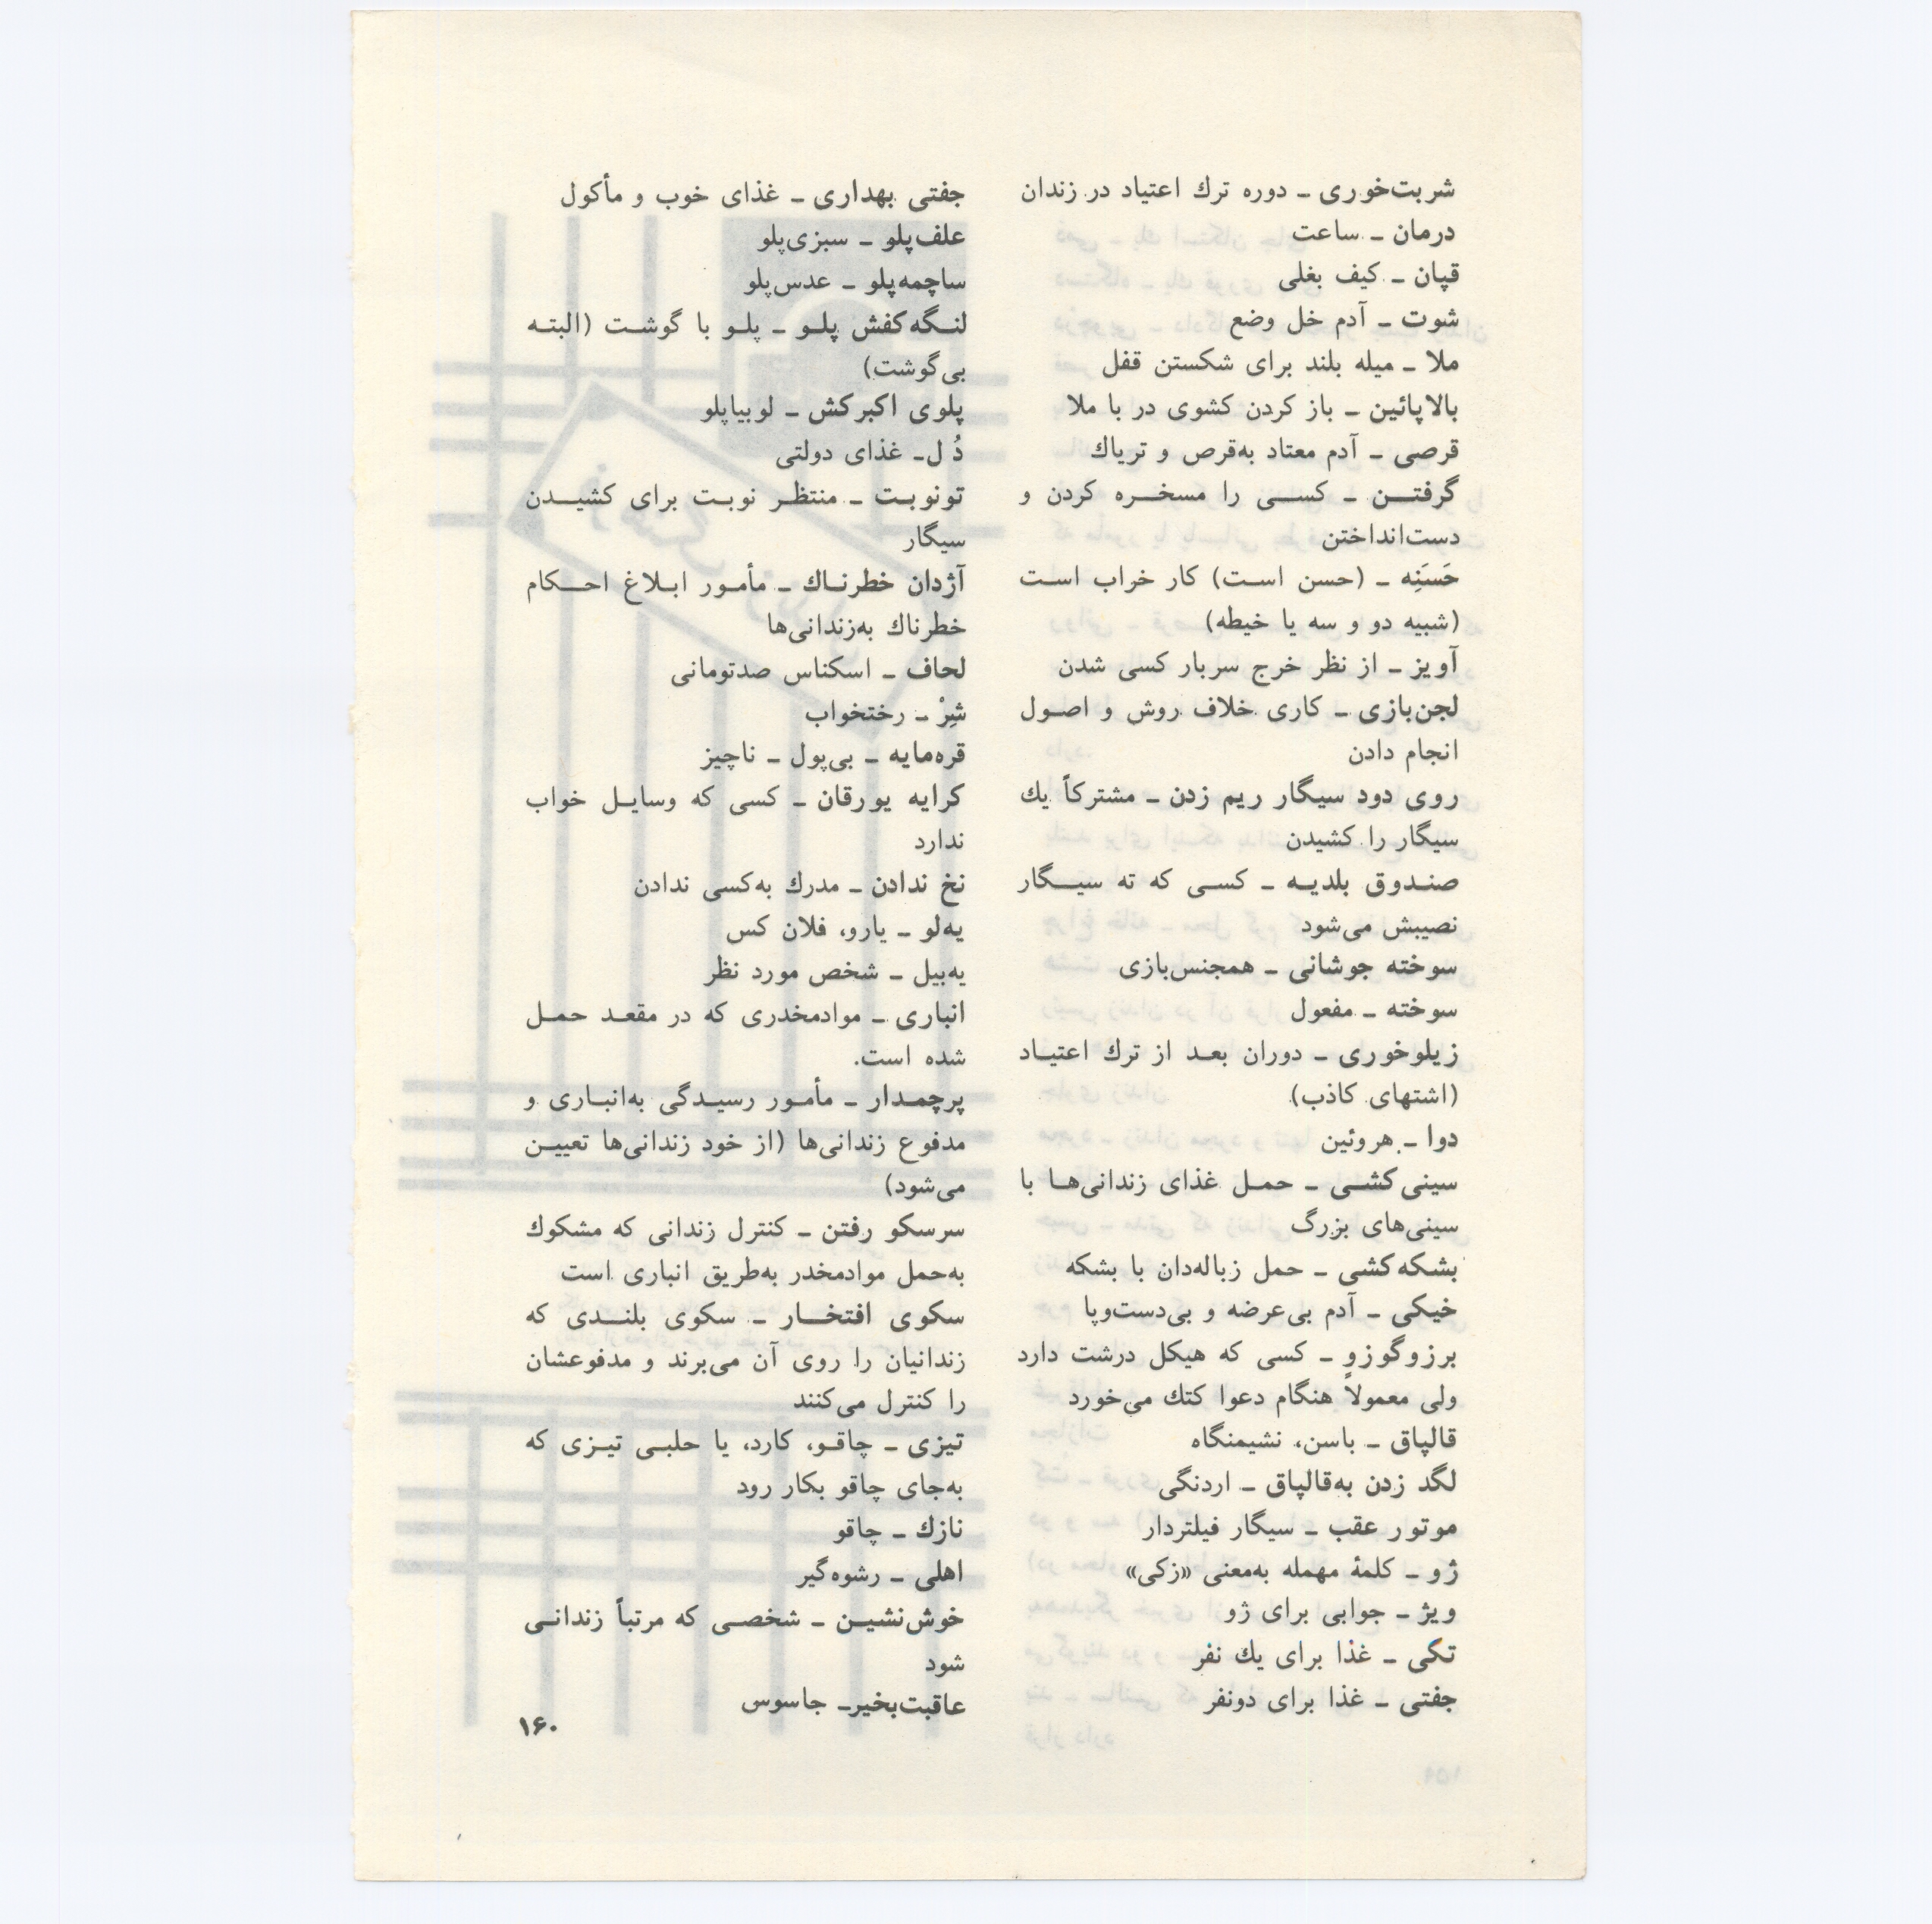 شربت‌خوری ـ دوره ترك اعتیاد در زندان
درمان ـ ساعت
قپان ـ کیف بغلی
شوت ـ آدم خل وضع
ملا ـ میله بلند برای شکستن قفل
بالاپائین ـ باز کردن کشوی در با ملا
قرصی ـ آدم معتاد به‌قرص و تریاك
گرفتن ـ کسی را مسخره کردن و
دست‌انداختن
حَسَنِه ـ (حسن است) کار خراب است
(شبیه دو و سه یا خیطه)
آویز ـ از نظر خرج سربار کسی شدن
لجن‌بازی ـ کاری خلاف روش و اصول
انجام دادن
روی دود سیگار ریم زدن ـ مشترکاً یك
سیگار را کشیدن
صندوق بلدیه ـ کسی که ته سیگار
نصیبش می‌شود
سوخته جوشانی ـ همجنس‌بازی
سوخته ـ مفعول
زیلوخوری ـ دوران بعد از ترك اعتیاد
(اشتهای کاذب)
دوا ـ هروئین
سینی‌کشی ـ حمل غذای زندانی‌ها با
سینی‌های بزرگ
بشکه‌کشی ـ حمل زباله‌دان با بشکه
خیکی ـ آدم بی‌عرضه و بی‌دست‌وپا
برزوگوزو ـ کسی که هیکل درشت دارد
ولی معمولاً هنگام دعوا کتك می‌خورد
قالپاق ـ باسن، نشیمنگاه
لگد زدن به‌قالپاق ـ اردنگی
موتور عقب ـ سیگار فیلتردار
ژو ـ کلمهٔ مهمله به‌معنی «زکی»
ویژ ـ جوابی برای ژو
تکی ـ غذا برای یك نفر
جفتی ـ غذا برای دونفر
جفتی بهداری ـ غذای خوب و مأکول
علف‌پلو ـ سبزی‌پلو
ساچمه‌پلو ـ عدس‌پلو
لنگه‌کفش پلو ـ پلو با گوشت (البته
بی‌گوشت)
پلوی اکبرکش ـ لوبیاپلو
دُل ـ غذای دولتی
تونوبت ـ منتظر نوبت برای کشیدن
سیگار
آژدان خطرناك ـ مأمور ابلاغ احکام
خطرناك به‌زندانی‌ها
لحاف ـ اسکناس صدتومانی
شِرْ ـ رختخواب
قره‌مایه ـ بی‌پول ـ ناچیز
کرایه یورقان ـ کسی که وسایل خواب
ندارد
نخ ندادن ـ مدرك به‌کسی ندادن
یه‌لو ـ یارو، فلان کس
یه‌بیل ـ شخص مورد نظر
انباری ـ موادمخدری که در مقعد حمل
شده است.
پرچمدار ـ مأمور رسیدگی به‌انباری و
مدفوع زندانی‌ها (از خود زندانی‌ها تعیین
می‌شود)
سرسکو رفتن ـ کنترل زندانی که مشکوك
به‌حمل موادمخدر به‌طریق انباری است
سکوی افتخار ـ سکوی بلندی که
زندانیان را روی آن می‌برند و مدفوعشان
را کنترل می‌کنند
تیزی ـ چاقو، کارد، یا حلبی تیزی که
به‌جای چاقو بکار رود
نازك ـ چاقو
اهلی ـ رشوه‌گیر
خوش‌نشین ـ شخصی که مرتباً زندانی
شود
عاقبت‌بخیر ـ جاسوس
۱۶۰